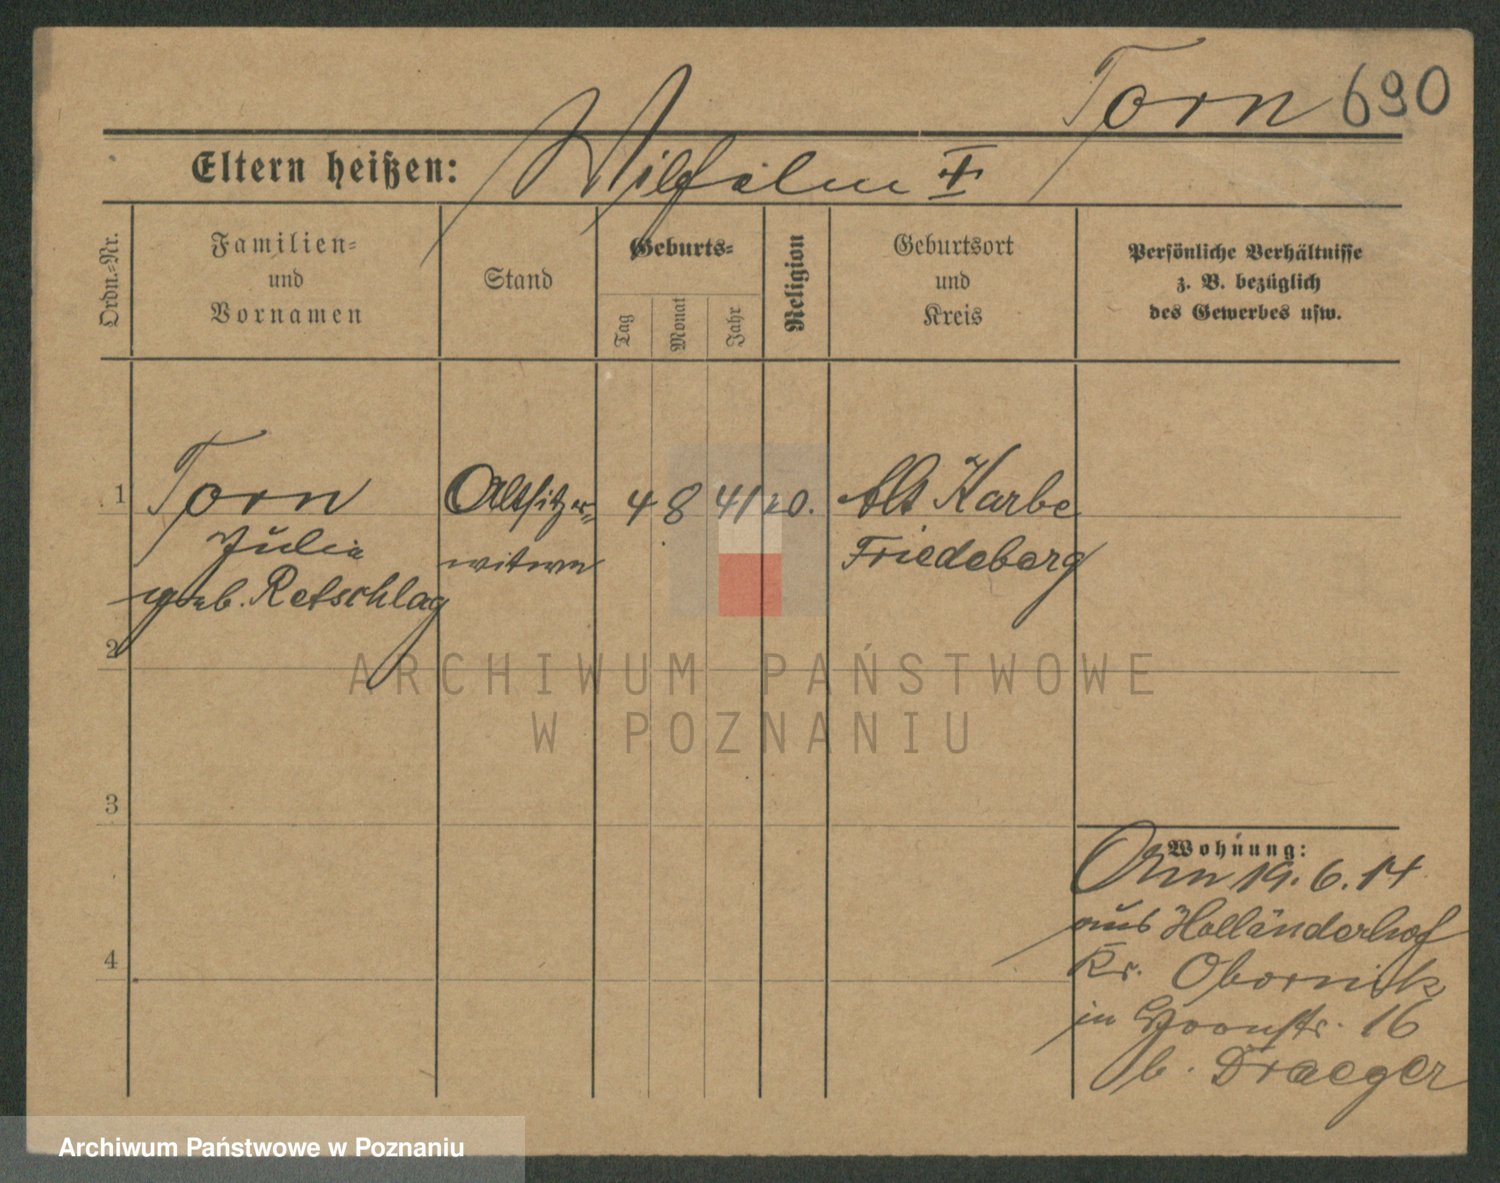 Torn 690
Eltern heißen: Wilhelm I
Ordn.-Nr.
Familien-
und
Vornamen
Stand
Geburts-
Tag
Monat
Jahr
Religion
Geburtsort
und
Kreis
Persönliche Verhältnisse
z. B. bezüglich
des Gewerbes usw.
1 Torn Altsitzer= 4 8 41 Alt Karbe
Julie witwe Friedeberg
geb. Retschlag
2
ARCHIWUM PAŃSTWOWE
W POZNANIU
3
Wohnung:
Am 19.6.14
aus Holländerhof
4
Kr. Obornik
in Roonstr. 16
b. Draeger
Archiwum Państwowe w Poznaniu